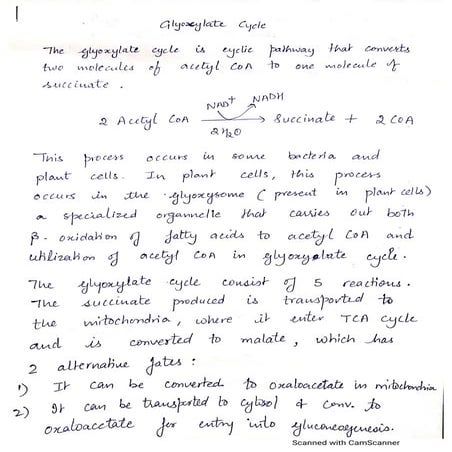 Glyoxylate Cycle
The glyoxylate cycle is cyclic pathway that converts
two molecules of acetyl CoA to one molecule of
succinate.
NAD+ NADH
2 Acetyl CoA → Succinate + 2 COA
2H2O
This process occurs in some bacteria and
plant cells. In plant cells, this process
occurs in the glyoxysome (present in plant cells)
a specialized organelle that carries out both
β-oxidation of fatty acids to acetyl CoA and
utilization of acetyl CoA in glyoxyalate cycle.
The glyoxylate cycle consist of 5 reactions.
The succinate produced is transported to
the mitochondria, where it enter TCA cycle
and is converted to malate, which has
2 alternative fates:
1) It can be converted to oxaloacetate in mitochondria
2) It can be transported to cytosol & conv. to
oxaloacetate for entry into gluconeogenesis.
Scanned with CamScanner